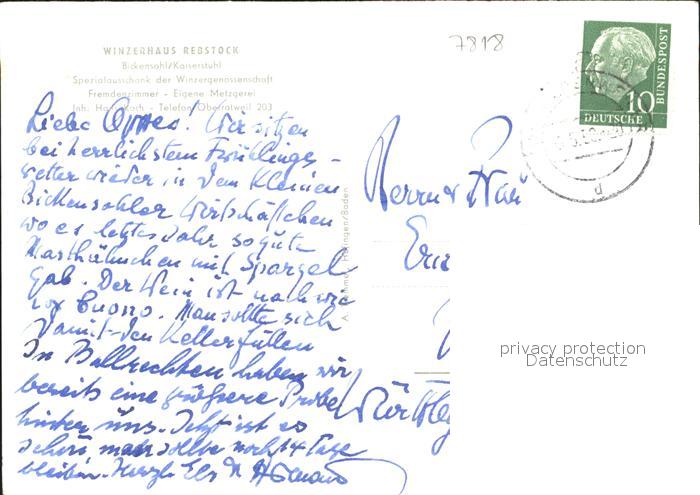 7818
WINZERHAUS REBSTOCK
Bickensohl/Kaiserstuhl
Spezialausschank der Winzergenossenschaft
Fremdenzimmer - Eigene Metzgerei
Inh. Koch - Telefon Oberrotweil 203
10
DEUTSCHE
BUNDESPOST
Liebe ! Wir sitzen
bei herrlichstem Frühlings-
wetter wieder in dem kleinen
Bickensohler Wirtschäftchen
wo es letztes Jahr so gute
Masthähnchen mit Spargel
gab. Der Wein ist nach wie
vor buono. Man sollte sich
damit den Keller füllen
In Ballrechten haben wir
bereits eine größere Probe
hinter uns. Jetzt ist es
schön man sollte noch 14 Tage
bleiben. Herzl.
Herrn u Frau
privacy protection
Datenschutz